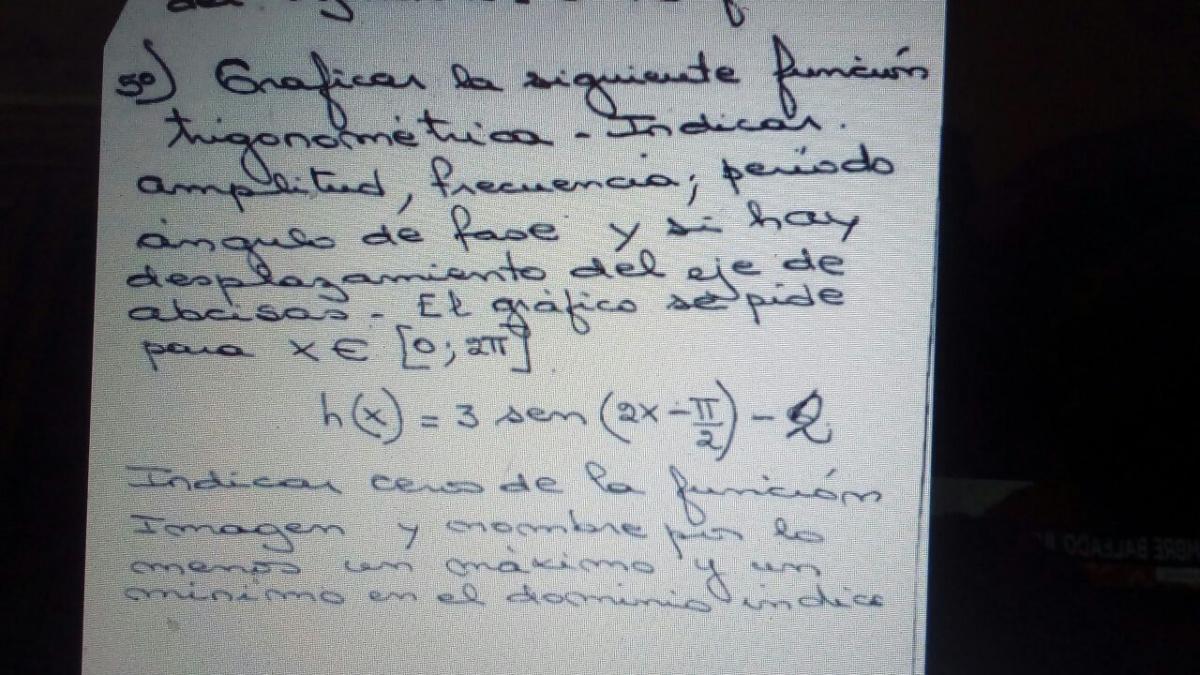 5º) Graficar la siguiente función
trigonométrica - Indicar.
amplitud, frecuencia; período
ángulo de fase y si hay
desplazamiento del eje de
abcisas - El gráfico se pide
para x ∈ [0; 2π]
h(x) = 3 sen (2x - π/2) - 2
Indicar ceros de la función
Imagen y nombre por lo
menos un máximo y un
mínimo en el dominio indica